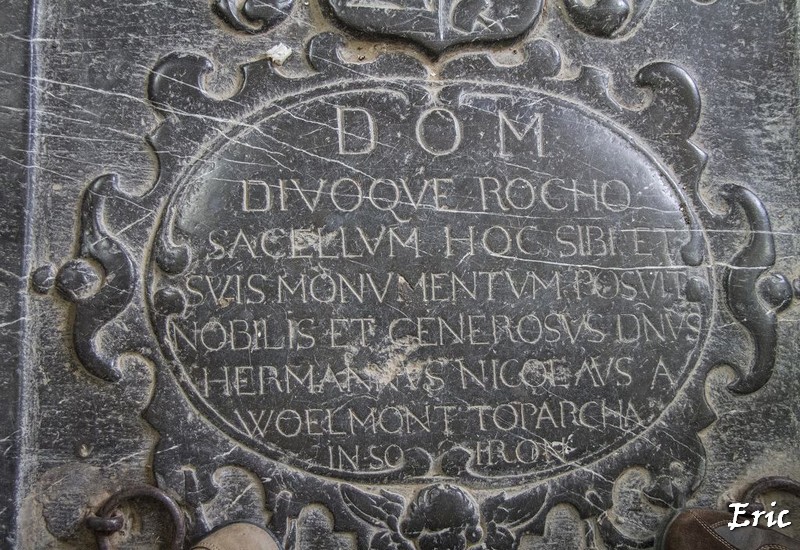 D·O·M
DIVOQVE ROCHO
SACELLVM HOC SIBI ET
SVIS MONVMENTVM POSVIT
NOBILIS ET GENEROSVS DNVS
HERMANNVS NICOLAVS A
WOELMONT TOPARCHA
IN SO HRON
Eric